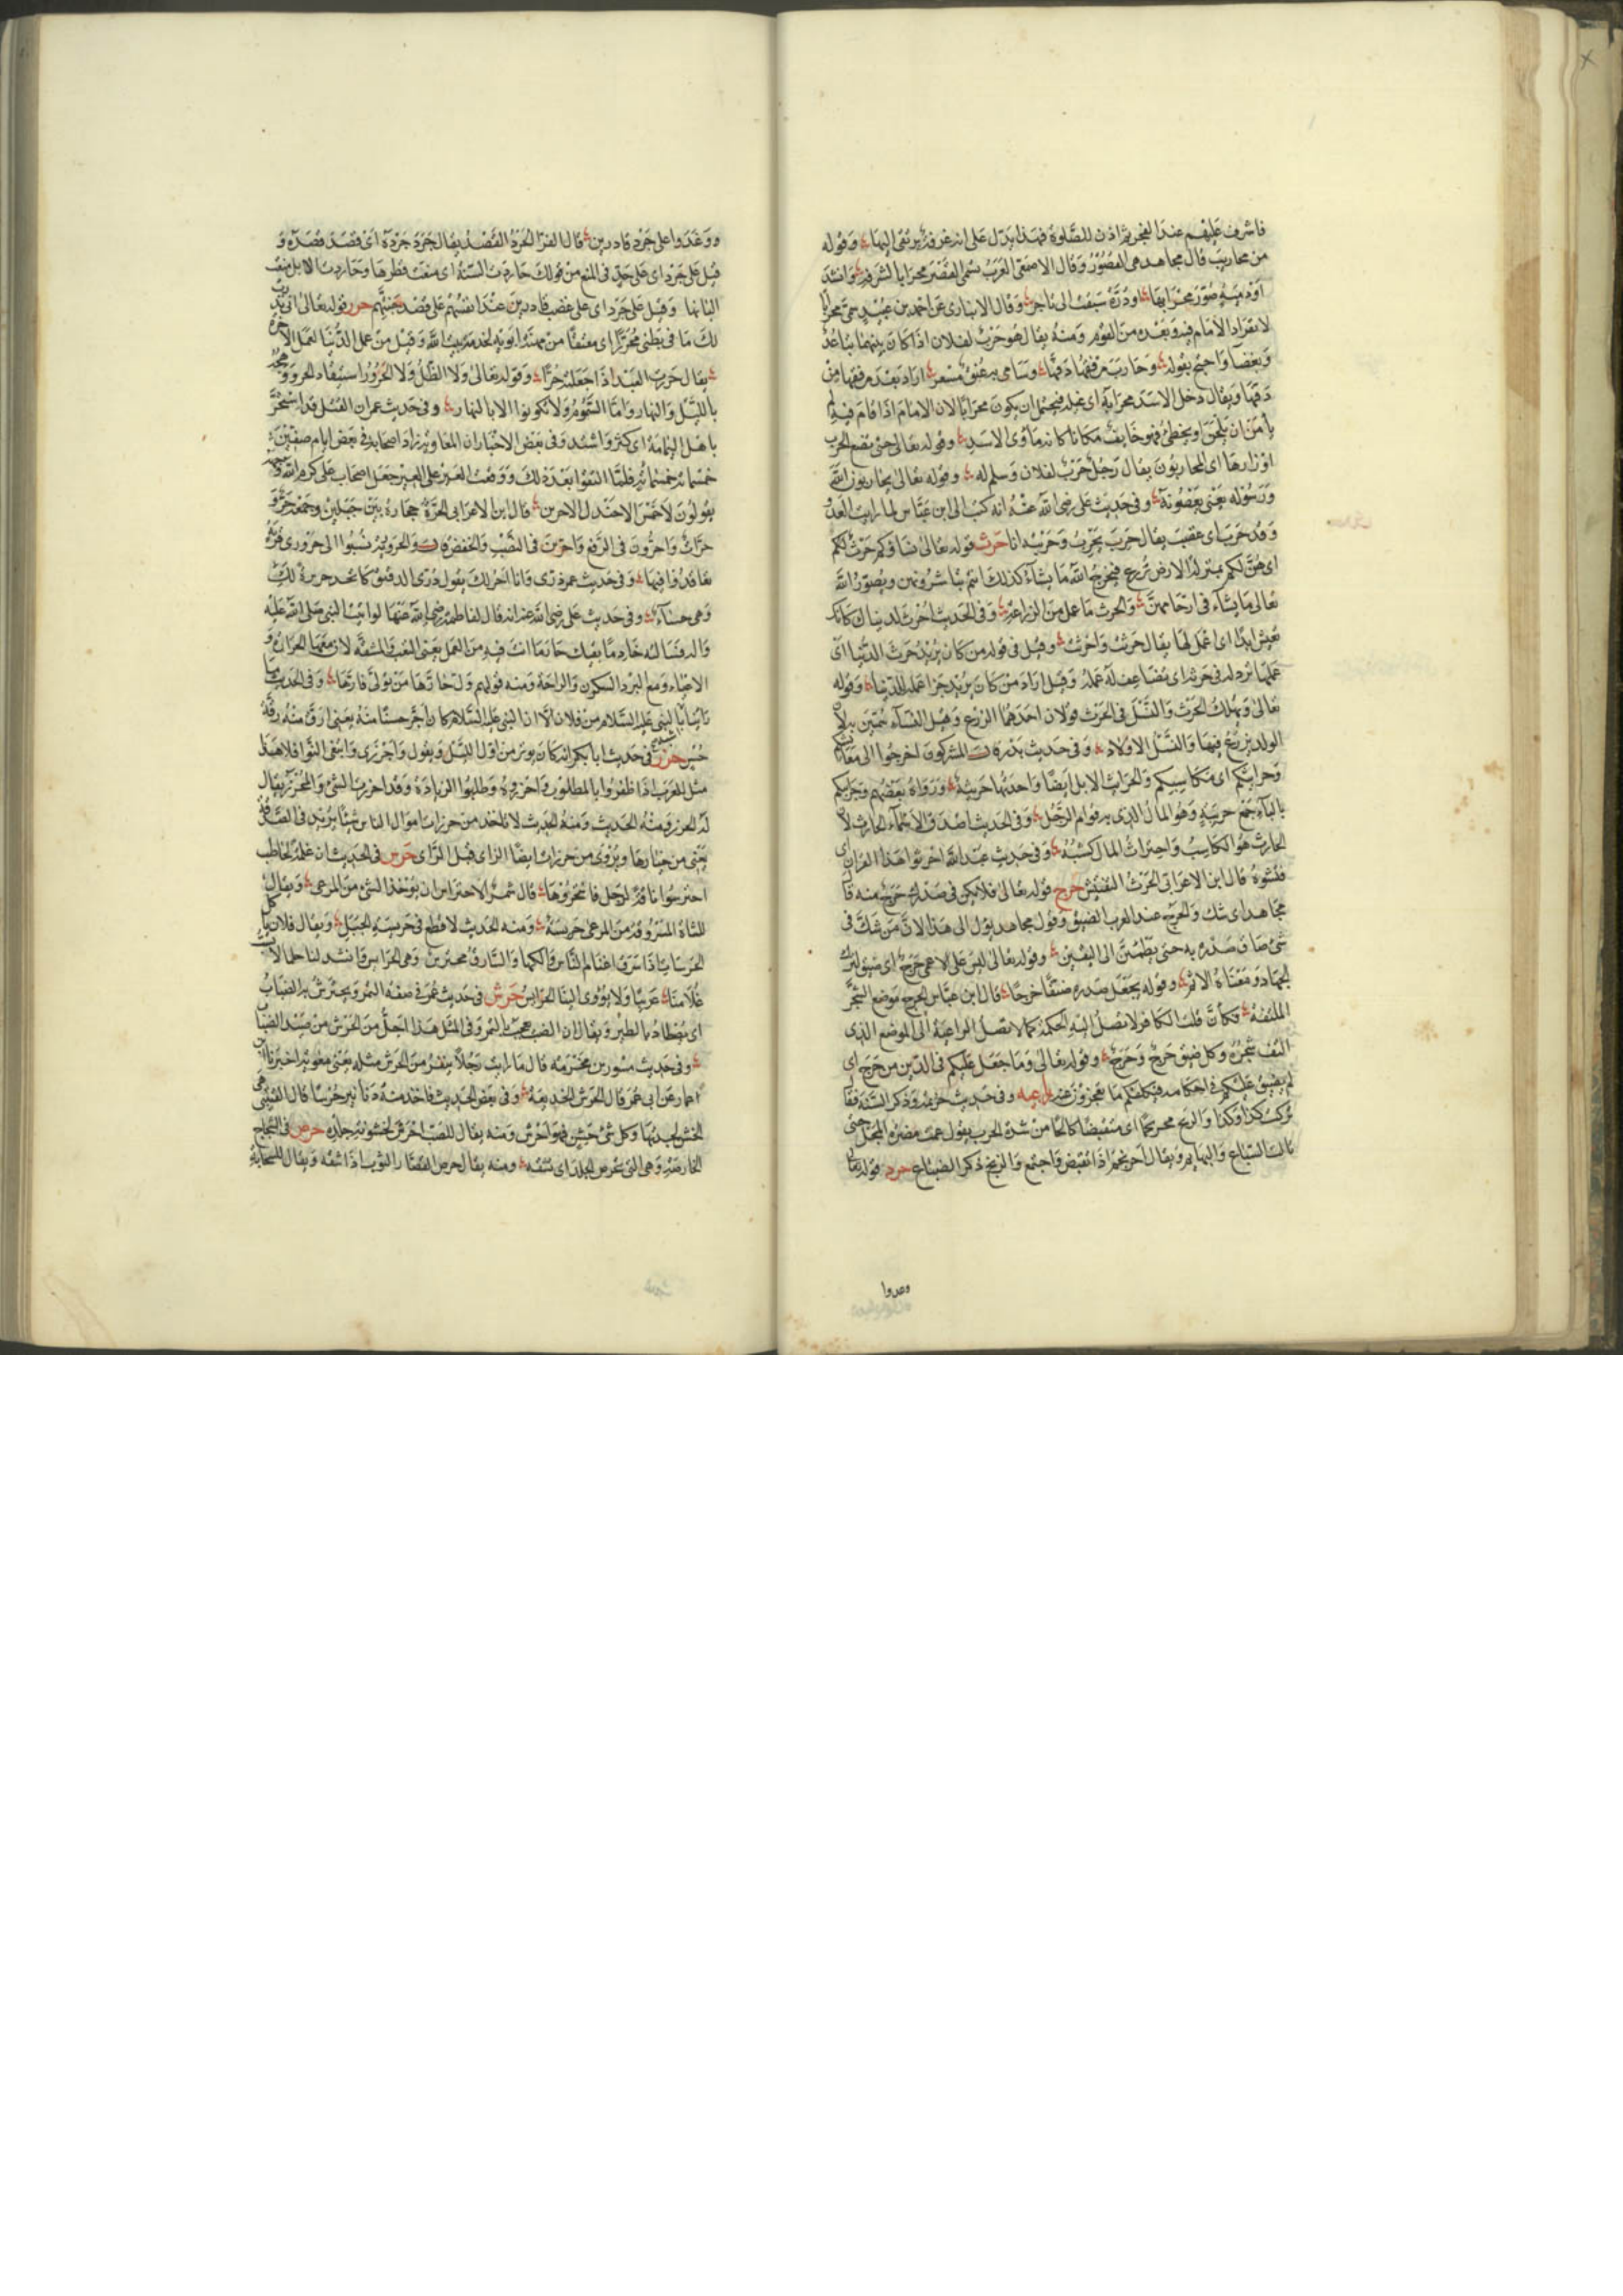 فاشرف عليهم عند الفجر ثم اذن للصلوة فهذا يدل على انه غرفة يرتقى اليها وقوله
من محاريب قال مجاهد هى القصور وقال الاصمعى العرب تسمى القصر محرابا لشرفه وانشد
او دمية صور محرابها او درة سيقت الى تاجر وقال الانبارى عن احمد بن عبيد سمى محرابا
لانفراد الامام فيه وبعده من القوم ومنه يقال هو حرب لفلان اذا كان بينهما تباعد
وبغضا واحتج بقوله وحارب مرفقها دفها وسامى به عنق مسعر اراد بعد مرفقها من
دفها ويقال دخل الاسد محرابه اى غيله فيحتمل ان يكون محرابا لان الامام اذا قام فيه لم
يأمن ان يلحن او يخطئ فهو خايف مكانا كانه مأوى الاسد وقوله تعالى حتى تضع الحرب
اوزارها اى المحاربون يقال رجل حرب لفلان وسلم له وقوله تعالى يحاربون الله
ورسوله يعنى يعصونه وفى حديث على رضى الله عنه انه كتب الى ابن عباس لما رايت العدو
وقد حرب اى غضب يقال حرب يحرب وحربه انا حرث قوله تعالى نساؤكم حرث لكم
اى هن لكم بمنزلة الارض تزرع فيخرج الله ما يشاء كذلك انتم تباشرونهن ويصور الله
تعالى ما يشاء فى ارحامهن والحرث ما عمل من الزراعة وفى الحديث احرث لدنياك كانك
تعيش ابدا اى اعمل لها يقال حرثت واحرثت وقيل فى قوله من كان يريد حرث الدنيا اى
عملها نزد له فى حرثه اى نضاعف له عمله وقيل اراد من كان يريد جزا عمله للدنيا وقوله
تعالى ويهلك الحرث والنسل فى الحرث قولان احدهما الزرع وقيل النساء سمين به لان
الولد يزرع فيها والنسل الاولاد وفى حديث بدر قالت المشركون اخرجوا الى معايشكم
وحرايثكم اى مكاسبكم والحرايث الابل ايضا واحدتها حريثة ورواه بعضهم وحرايبكم
بالباء جمع حريبة وهو المال الذى به قوام الرجل وفى الحديث اصدق الاسماء الحارث لان
الحارث هو الكاسب واحتراث المال كسبه وفى حديث عبد الله احرثوا هذا القران اى
فتشوه قال ابن الاعرابى الحرث التفتيش حرج قوله تعالى فلا يكن فى صدرك حرج منه قال
مجاهد اى شك والحرج عند العرب الضيق وقول مجاهد يؤل الى هذا لان من شك فى
شئ ضاق صدره به حتى يطمئن الى اليقين وقوله تعالى ليس على الاعمى حرج اى ضيق لترك
الجهاد ومعناه الاثم وقوله يجعل صدره ضيقا حرجا قال ابن عباس الحرج موضع الشجر
الملتفة فكأن قلب الكافر لا تصل اليه الحكمة كما لا تصل الراعية الى الموضع الذى
التف شجره وكل ضيق حرج وحرج وقوله تعالى وما جعل عليكم فى الدين من حرج اى
لم يضيق عليكم فى احكامه فيكلفكم ما تعجزون عنه وفى حديث خزيمة وذكر السنة فقال
تركت كذا وكذا والذيخ محرنجما اى منقبضا كالحا من شدة الحرب يقول عمت مضرة المحل حتى
نالت السباع والبهايم ويقال احرنجم اذا انقبض واجتمع والذيخ ذكر الضباع حرد قوله تعالى
وغدوا
ووغدوا على حرد قادرين قال الفرا الحرد القصد يقال حرد حرده اى قصد قصده و
قيل على حرد اى على حد فى المنع من قولك حاردت السنة اى منعت قطرها وحاردت الابل منعت
البانها وقيل على حرد اى على غضب قادرين عند انفسهم على قصد جنتهم حرر قوله تعالى انى نذرت
لك ما فى بطنى محررا اى معتقا من مهنة ابويه لخدمة بيت الله وقيل من عمل الدنيا لعمل الاخرة
يقال حررت العبد اذا جعلته حرا وقوله تعالى ولا الظل ولا الحرور استيقاد الحر ووهجه
بالليل والنهار واما السموم ولا تكون الا بالنهار وفى حديث عمر ان القتل قد استحر
باهل اليمامة اى كثر واشتد وفى بعض الاخبار ان المعاوية زاد اصحابه فى بعض ايام صفين
خمسمائة خمسمائة فلما التقوا بعد ذلك ووقعت العين على العين جعل اصحاب على كرم الله وجهه
يقولون لا خمس الا جندل الاحرين قال ابن الاعرابى الحرة حجارة بين جبلين وجمعه حر و
حرات واحرون فى الرفع واحرين فى النصب والخفض والحرورية نسبوا الى حرورى قرية
تعاقدوا فيها وفى حديث عمر ذرى وانا احر لك يقول ذرى الدقيق كاتخذ حريرة لك
وهى حساء وفى حديث على رضى الله عنه انه قال لفاطمة رضى الله عنها لو اتيت النبى صلى الله عليه
واله فسالته خادما يقيك حار ما انت فيه من العمل يعنى التعب والمشقة لان معهما الحرارة و
الاعياء ومع البرد السكون والراحة ومنه قولهم ول حارها من تولى قارها وفى الحديث ما
رايت اشبه بالنبى عليه السلام من فلان الا ان النبى عليه السلام كان احر حسنا منه يعنى ارق منه رقة
حسن حرز فى حديث ابا بكر انه كان يوتر من اول الليل ويقول واحرزى وابتغى النوافلا هذا
مثل للعرب اذا ظفروا بالمطلوب واحرزوه وطلبوا الزيادة وقد احرزت الشئ والمحرز يقال
له الحرز ومنه الحديث ومنه الحديث لا تاخذ من حرزات اموال الناس شيئا يريد فى الصدقة
يعنى من خيارها ويروى من حزرات ايضا الزاى قبل الراى حرس فى الحديث ان غلمة لحاطب
احترسوا ناقة لرجل فانتحروها قال شمر الاحتراس ان يؤخذ الشئ من المرعى ويقال
للشاة المسروقة من المرعى حريسة ومنه الحديث لا قطع فى حريسة الجبل ويقال فلان ياكل
الحرسات اذا سرق اغنام الناس فاكلها والسارق محترس وهى الحرايس وانشد لنا حلما لاتيت
غلامنا غريبا ولا يؤوى الينا الحرايس حرش فى حديث عمر فى صفة التمر ويحترش به الضباب
اى تصطاد بالطير ويقال ان الضب يعجب بالتمر وفى المثل هذا اجل من الحرش من صيد الضباب
وفى حديث مسور بن مخرمة قال ما رايت رجلا ينفر من الحرش مثله يعنى معوية اخبرنا ابن
عمار عن ابى عمر قال الحرش الخديعة وفى بعض الحديث فاخذ منه دنانير حرشا قال القتيبى هى
الخشن لجدتها وكل شئ خشن فهو احرش ومنه يقال للضب احرش لخشونة جلده حرص فى الشجاج
الحارصة وهى التى تحرص الجلد اى تشقه ومنه يقال حرص القصار الثوب اذا شقه ويقال للسحابة